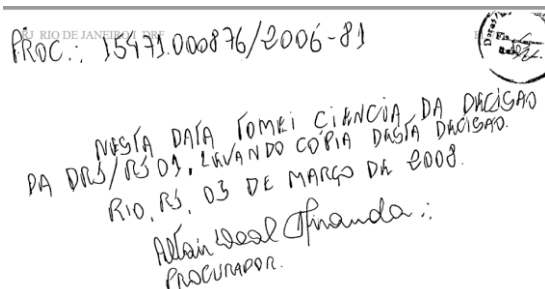 RJ RIO DE JANEIRO I DRF
PROC.: 15471.000876/2006-81
Fls.
NESTA DATA TOMEI CIÊNCIA DA DECISÃO
DA DRJ/RJ 01, LEVANDO CÓPIA DESTA DECISÃO.
RIO, RJ, 03 DE MARÇO DE 2008.
PROCURADOR.